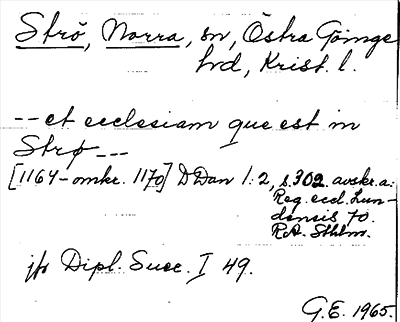 Strö, Norra, sn, Östra Göinge
hrd, Krist. l.
-- et ecclesiam que est in
Strø ---
[1164-omkr. 1170] DDan 1:2, s.302. avskr.a:
Reg. eccl. Lun-
densis 70.
R.A. Sthlm.
jfr Dipl. Suec. I 49.
G.E. 1965.